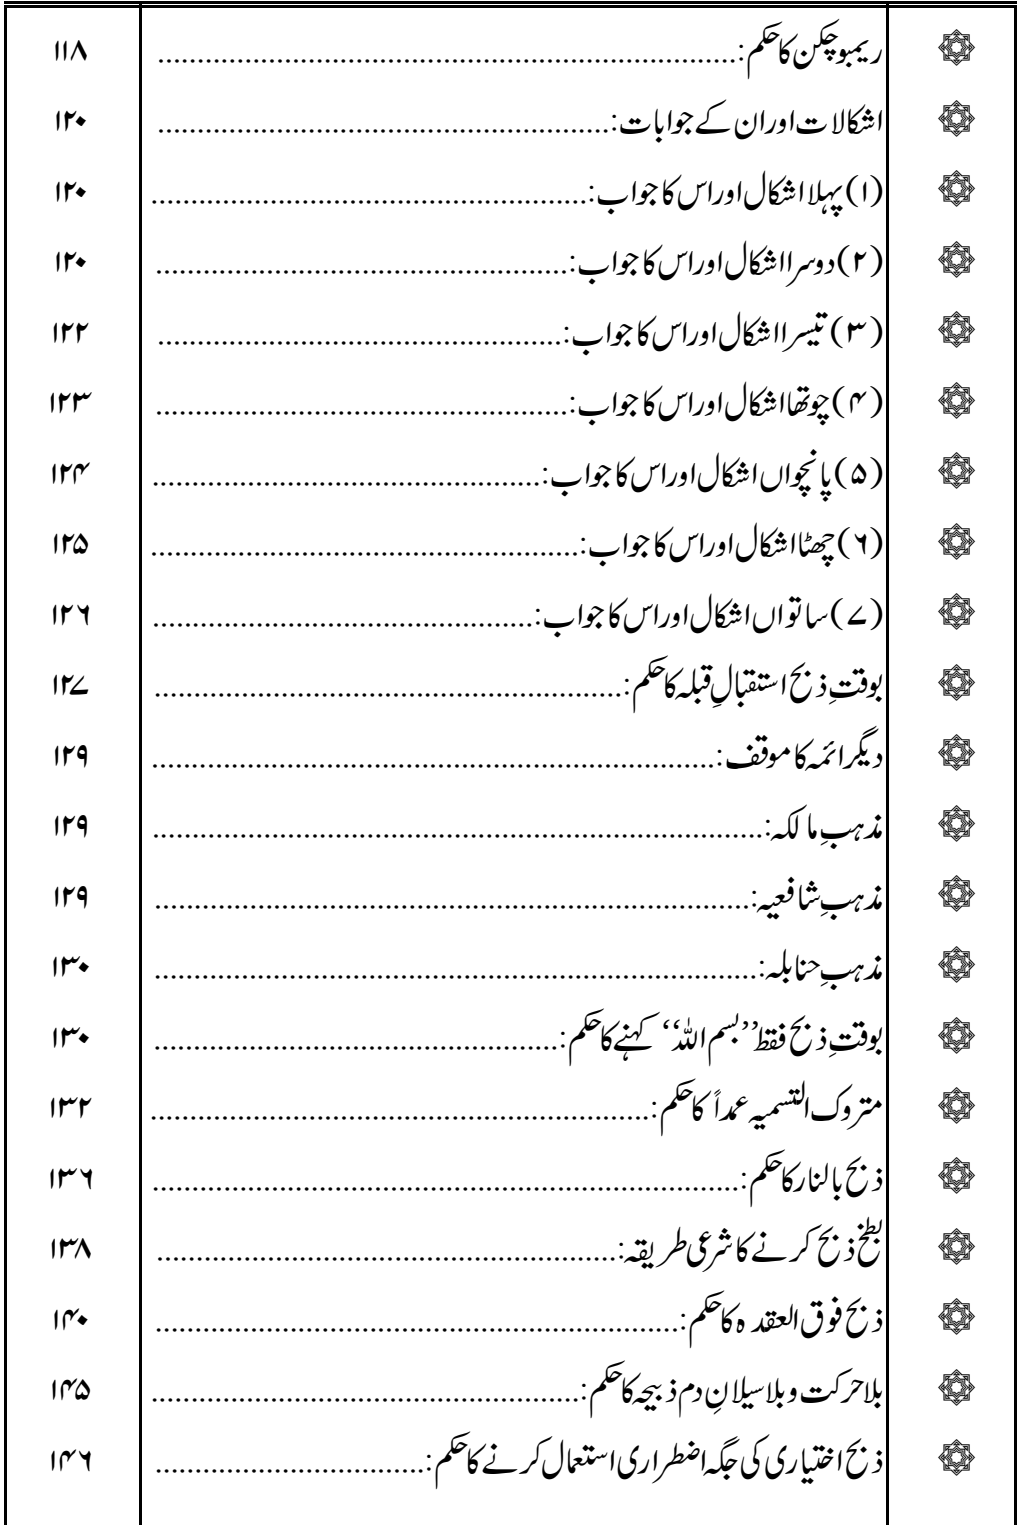 ریمبو چکن کا حکم: ........ ۱۱۸
اشکالات اور ان کے جوابات: ........ ۱۲۰
(۱) پہلا اشکال اور اس کا جواب: ........ ۱۲۰
(۲) دوسرا اشکال اور اس کا جواب: ........ ۱۲۰
(۳) تیسرا اشکال اور اس کا جواب: ........ ۱۲۲
(۴) چوتھا اشکال اور اس کا جواب: ........ ۱۲۳
(۵) پانچواں اشکال اور اس کا جواب: ........ ۱۲۴
(۶) چھٹا اشکال اور اس کا جواب: ........ ۱۲۵
(۷) ساتواں اشکال اور اس کا جواب: ........ ۱۲۶
بوقتِ ذبح استقبالِ قبلہ کا حکم: ........ ۱۲۷
دیگر ائمہ کا موقف: ........ ۱۲۹
مذہبِ مالکہ: ........ ۱۲۹
مذہبِ شافعیہ: ........ ۱۲۹
مذہبِ حنابلہ: ........ ۱۳۰
بوقتِ ذبح فقط ’’بسم اللہ‘‘ کہنے کا حکم: ........ ۱۳۰
متروک التسمیہ عمداً کا حکم: ........ ۱۳۲
ذبح بالنار کا حکم: ........ ۱۳۶
بطخ ذبح کرنے کا شرعی طریقہ: ........ ۱۳۸
ذبح فوق العقدہ کا حکم: ........ ۱۴۰
بلا حرکت و بلا سیلانِ دم ذبیحہ کا حکم: ........ ۱۴۵
ذبح اختیاری کی جگہ اضطراری استعمال کرنے کا حکم: ........ ۱۴۶